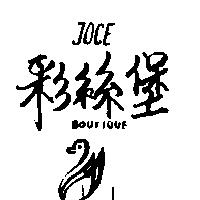 JOCE
彩絲堡
BOUTIQUE